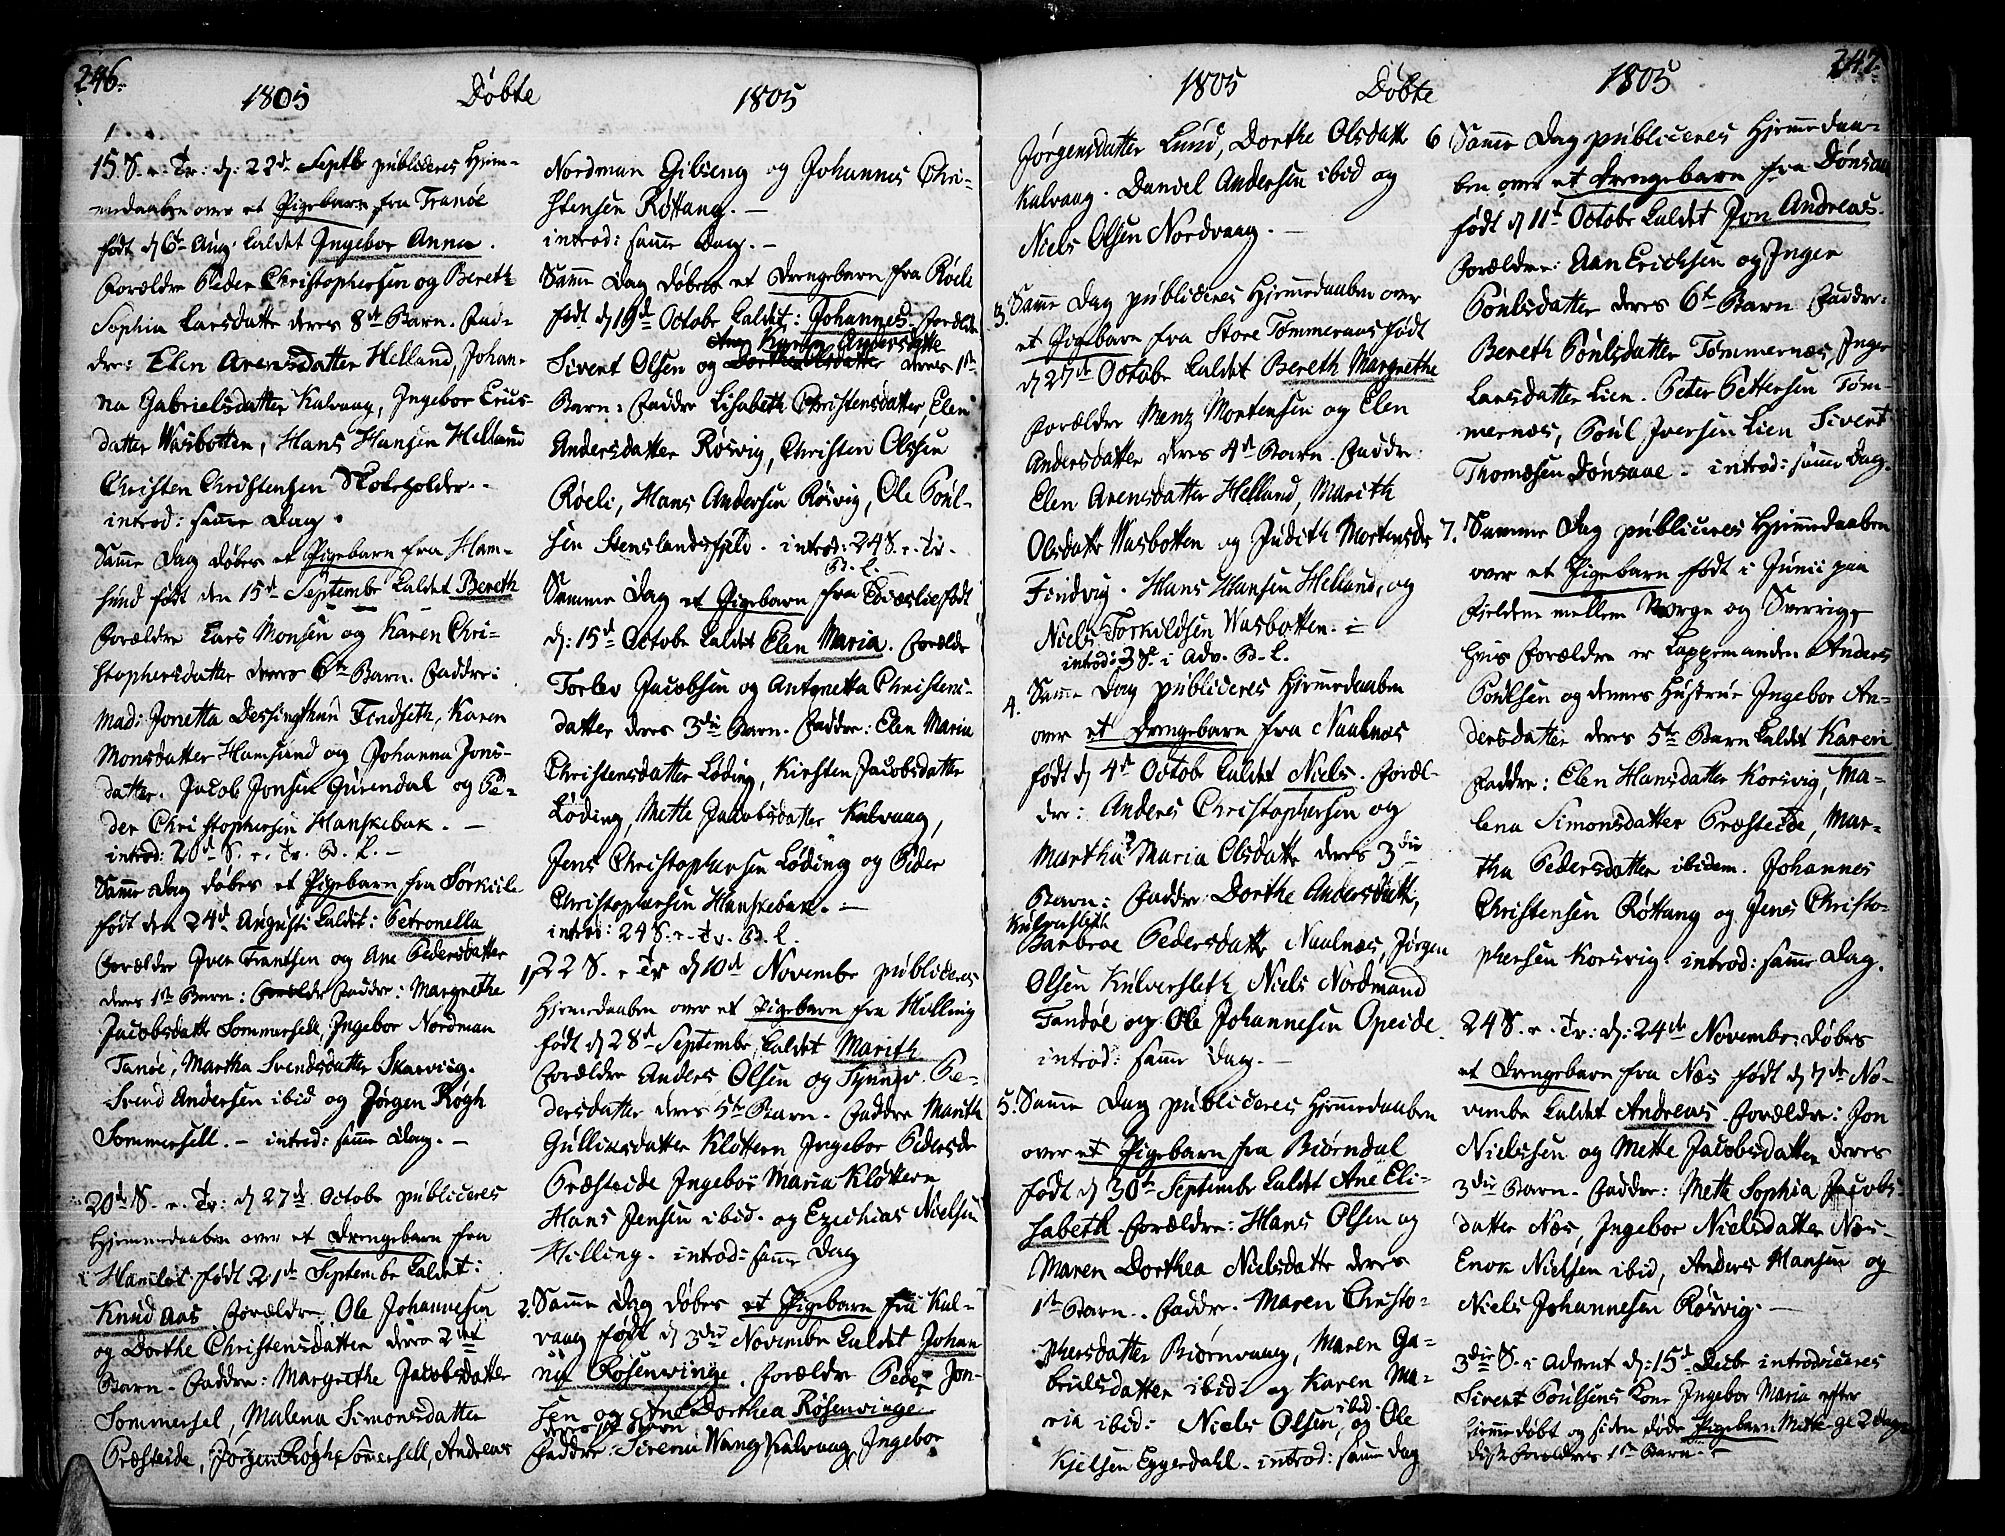 246.
1805 Døbte 1805
15 S. e. Tr: d: 22d Septb publiceres Hjem-
medaaben over et Pigebarn fra Tranøe
født d 6t Aug: kaldet Ingebor Anna.
Forældre Peder Christophersen og Bereth
Sophia Larsdatter deres 8de Barn. Fad-
dre: Elen Arensdatter Helland, Johan-
na Gabrielsdatter Kalvaag, Ingebor Erics-
datter Wasbotten, Hans Hansen Helland
Christen Christensen Skoleholder.
introd: samme Dag.
Samme Dag døbes et Pigebarn fra Ham-
sund født den 15d September kaldet Bereth
Forældre Lars Monsen og Karen Chri-
stophersdatter deres 6te Barn. Faddre:
Mad: Jonetta Dessingthun Findseth, Karen
Monsdatter Hamsund og Johanna Jons-
datter. Jacob Jonsen Gurendal og Pe-
der Christophersen Hanskebak. –
introd: 20d S. e. Tr. B. l. –
Samme Dag døbes et Pigebarn fra Sørkiil
født den 24d Augusti kaldet: Petronella
Forældre Iver Frantsen og Ane Pedersdatter
deres 1te Barn: Faddre: Margrethe
Jacobsdatt Sommersell, Ingebor Nordman
Tanøe, Martha Svendsdatter Skarvig.
Svend Andersen ibid og Jørgen Røgh
Sommersell. – introd: samme Dag. –
20de S. e. Tr: d 27de Octobr publiceres
Hjemmedaaben over et Drengebarn fra
Hamlot født 21d September kaldet:
Knud Aas Forældre: Ole Johannesen
og Dorthe Christensdatter deres 2det
Barn. Faddre: Margrethe Jacobsdatter
Sommersel, Malena Simonsdatter
Præsteide, Jørgen Røgh Sommersell, Andreas
Nordman Gibseng og Johannes Chri-
stensen Røttang. –
introd: samme Dag. –
Samme Dag døbes et Drengebarn fra Røeli
født d 19de Octobr kaldet: Johannes. Forældre
Ane Karen Andersdatte
Sivert Olsen og Dorthe Olsdatter deres 1te
Barn: Faddre Lisabeth Christensdatter, Elen
Andersdatter Røsvig, Christen Olsen
Røeli, Hans Andersen Røsvig, Ole Poul-
sen Stenslandsfjeld. introd: 24 S. e. Tr.
B. l.
Samme Dag et Pigebarn fra født
d: 15d Octobr kaldet Elen Maria. Forældre
Torlev Jacobsen og Antonetta Christens-
datter deres 3die Barn. Faddre: Elen Maria
Christensdatter Løding, Kirsten Jacobsdatter
Løding, Mette Jacobsdatter Kalvaag,
Jens Christophersen Løding og Peder
Christophersen Hanskebak. –
introd: 24 S. e. Tr. B. l.
1. 22 S. e Tr d 10d Novembr publiceres
Hjemmedaaben over et Pigebarn fra Hilling
født d 28d Septembr kaldet Marith
Forældre Anders Olsen og Synnev Pe-
dersdatter deres 5te Barn. Faddre Marith
Gullicsdatter Kløttern Ingebor Pedersdr
Præsteide Ingebor Maria Kløttern
Hans Jensen ibid. og Ezechias Nielsen
Hilling. introd: samme Dag
2. Samme Dag døbes et Pigebarn fra Kal-
vaag født d 3die Novembr kaldet Johan
na Rosenvinge. Forældre Peder Jon-
sen og Ane Dorthea Røsenvinge
deres 1ste Barn
Faddre: Sirenia Wang Kalvaag, Ingebor
247.
1805 Døbte 1805
Jørgensdatter Lund, Dorthe Olsdatt
Kalvaag. Daniel Andersen ibid og
Niels Olsen Nordvaag. –
3. Samme Dag publiceres Hjemmedaaben over
et Pigebarn fra Store Tømmernæs født
d 27de Octobr kaldet Bereth Margrethe
Forældre Menz Mortensen og Elen
Andersdatter deres 4de Barn. Faddre:
Elen Arensdatter Helland, Marith
Olsdatt Wasbotten og Judith Mortensdr
Findvig. Hans Hansen Helland, og
Niels Torkildsen Wasbotten. –
introd: 3 S. i Adv. B. l.
4. Samme Dag publiceres Hjemmedaaben
over et Drengebarn fra Naulnæs
født d 4d Octobr kaldet Niels. Foræl-
dre: Anders Christophersen og
Martha Maria Olsdatt deres 3die
Barn: Faddre: Dorthe Andersdatt,
Kulversleth
Barbroe Pedersdatt Naulnæs, Jørgen
Olsen Kulversleth, Niels Nordmand
Tandøe og Ole Johannesen Opeide
introd: samme Dag. –
5. Samme Dag publiceres Hjemmedaaben
over et Pigebarn fra Biørndal
født d 30te Septembr kaldet Ane Eli-
sabeth Forældre: Hans Olsen og
Maren Dorthea Nielsdatt deres
1te Barn. Faddre: Maren Christo-
phersdatter Biørnvaag, Maren Ga-
brielsdatter ibid: og Karen Ma-
ria ibid: Niels Olsen ibid. og Ole
Kjelsen Eggerdahl. introd: samme Dag
6 Samme Dag publiceres Hjemmedaa-
ben over et Drengebarn fra Dønsaae
født d 11te Octobr kaldet Jon Andreas.
Forældre: Aan Erichsen og Inger
Poulsdatter deres 6te Barn Faddre:
Bereth Poulsdatter Tømmernæs, Inger
Larsdatter Lien. Peter Pettersen Tøm-
mernæs, Poul Iversen Lien Sivert
Thomæsen Dønsaae. introd: samme Dag.
7. Samme Dag publiceres Hjemmedaaben
over et Pigebarn født i Junii paa
Fieldene mellem Norge og Sverrige
hvis Forældre er Lappemanden Anders
Poulsen og dennes Hustrue Ingebor An-
dersdatter deres 5te Barn kaldet Karen
Faddre: Elen Hansdatter Korsvig, Ma-
lena Simonsdatter Præsteide, Mar-
tha Pedersdatter ibidem. Johannes
Christensen Røttang og Jens Christo-
phersen Korsvig. introd: samme Dag.
24 S. e. Tr: d: 24de Novembr: døbes
et Drengebarn fra Næs født d 7de No-
vembr kaldet Andreas Forældre: Jon
Nielssen og Mette Jacobsdatter deres
3die Barn. Faddre: Mette Sophia Jacobs-
datter Næs, Ingebor Nielsdatter Næs-
Enok Nielsen ibid, Anders Hansen og
Niels Johannesen Røsvig. –
3die S. i Advent d: 15d Decbr introduceres
Sivert Poulsens Kone Ingebor Maria efter
hjemmedøbt og siden døde Pigebarn Mette 2 dage
disse Forældres 1te Barn. –